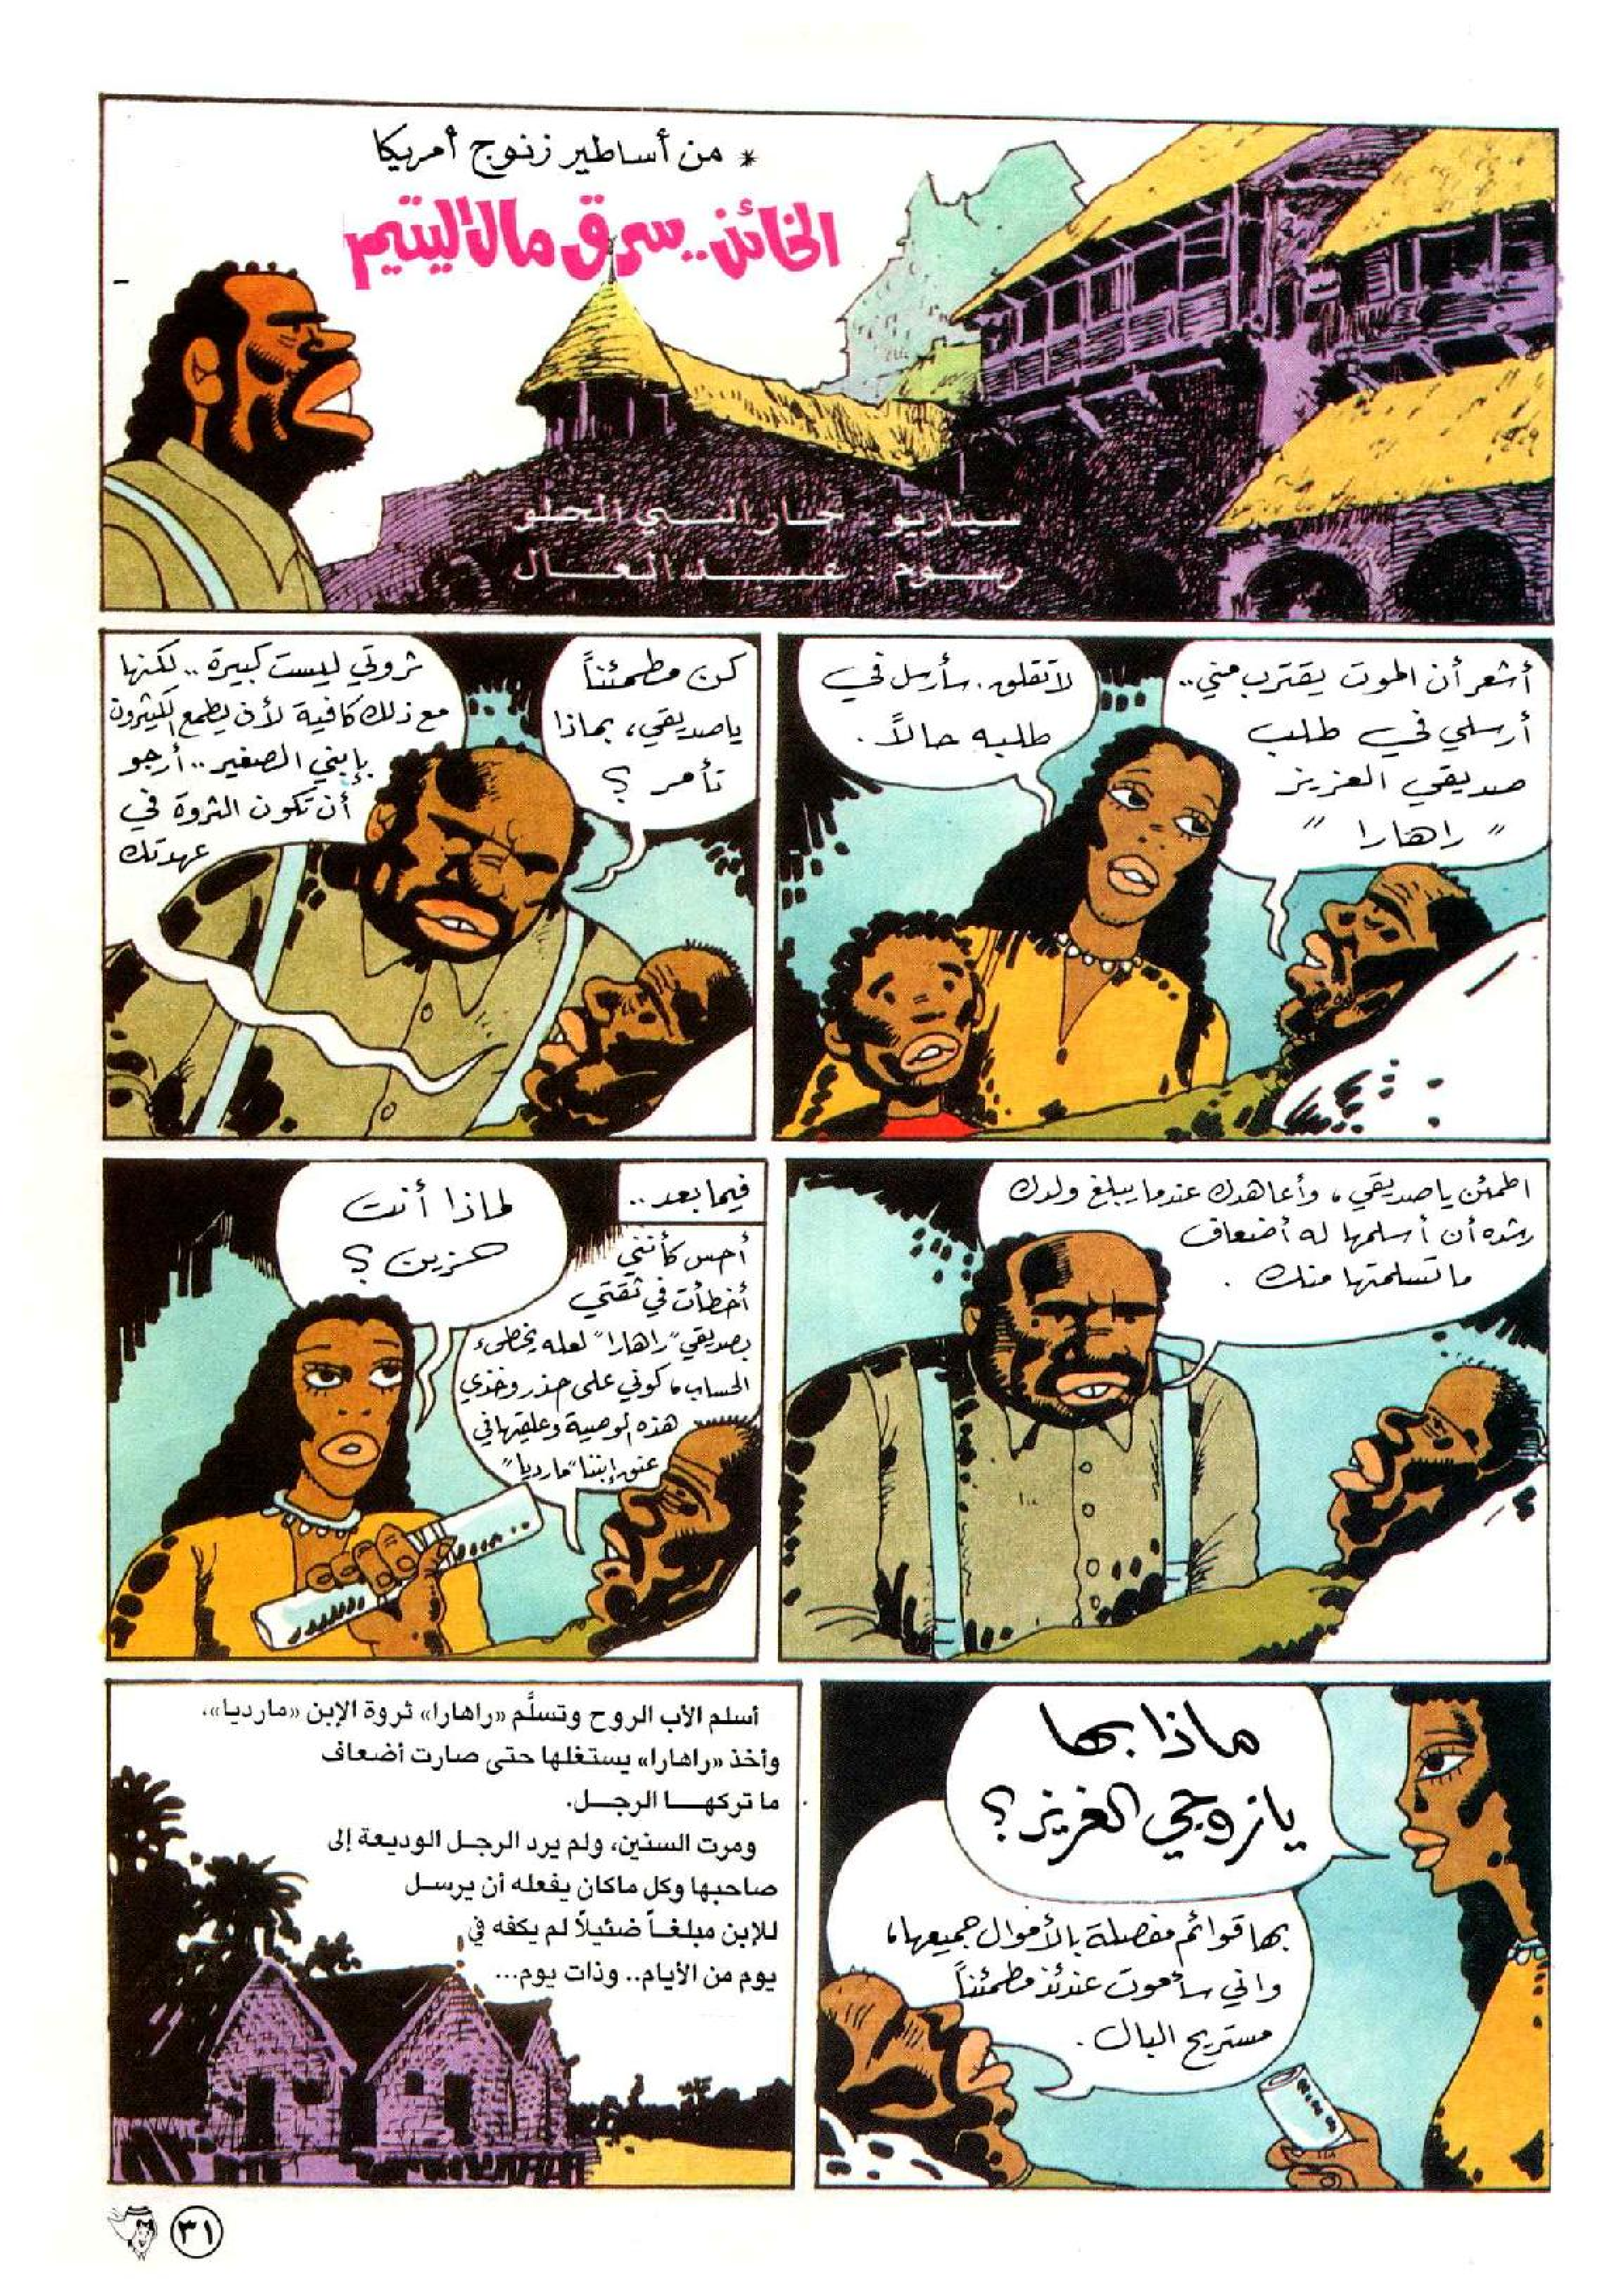 * من أساطير زنوج أمريكا
الخائن.. سرق مال اليتيم
سيناريو : جار النبي الحلو
رسوم : عبد العال
أشعر أن الموت يقترب مني..
أرسلي في طلب
صديقي العزيز
" راهارا "
لا تقلق. سأرسل في
طلبه حالاً.
كن مطمئناً
يا صديقي، بماذا
تأمر ؟
ثروتي ليست كبيرة .. لكنها
مع ذلك كافية لأن يطمع الكثيرون
بإبني الصغير .. أرجو
أن تكون الثروة في
عهدتك
اطمئن يا صديقي، وأعاهدك عندما يبلغ ولدك
رشده أن أسلمها له أضعاف
ما تسلمتها منك .
فيما بعد ..
لماذا أنت
حزين ؟
أحس كأنني
أخطأت في ثقتي
بصديقي "راهارا" لعله يخطىء
الحساب، كوني على حذر وخذي
هذه الوصية وعلقيها في
عنق إبننا "مارديا"
ماذا بها
يا زوجي العزيز ؟
بها قوائم مفصلة بالأموال جميعها،
واني سأموت عندئذ مطمئناً
مستريح البال .
أسلم الأب الروح وتسلَّم «راهارا» ثروة الإبن «مارديا»،
وأخذ «راهارا» يستغلها حتى صارت أضعاف
ما تركهـا الرجـل.
ومرت السنين، ولم يرد الرجـل الوديعة إلى
صاحبها وكل ماكان يفعله أن يرسـل
للإبن مبلغـاً ضئيلاً لم يكفه في
يوم من الأيام.. وذات يوم...
٣١